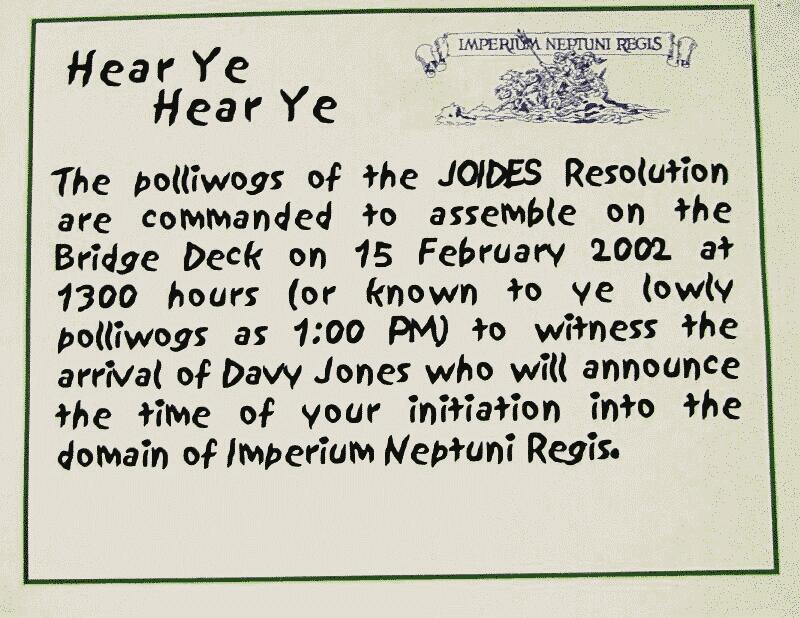 Hear Ye
IMPERIUM NEPTUNI REGIS
Hear Ye
The polliwogs of the JOIDES Resolution
are commanded to assemble on the
Bridge Deck on 15 February 2002 at
1300 hours (or known to ye lowly
polliwogs as 1:00 PM) to witness the
arrival of Davy Jones who will announce
the time of your initiation into the
domain of Imperium Neptuni Regis.